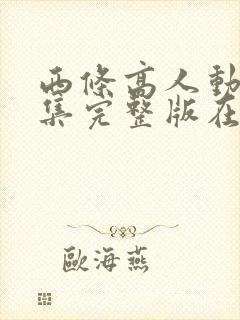 西條高人動
集完整版在
歐海燕